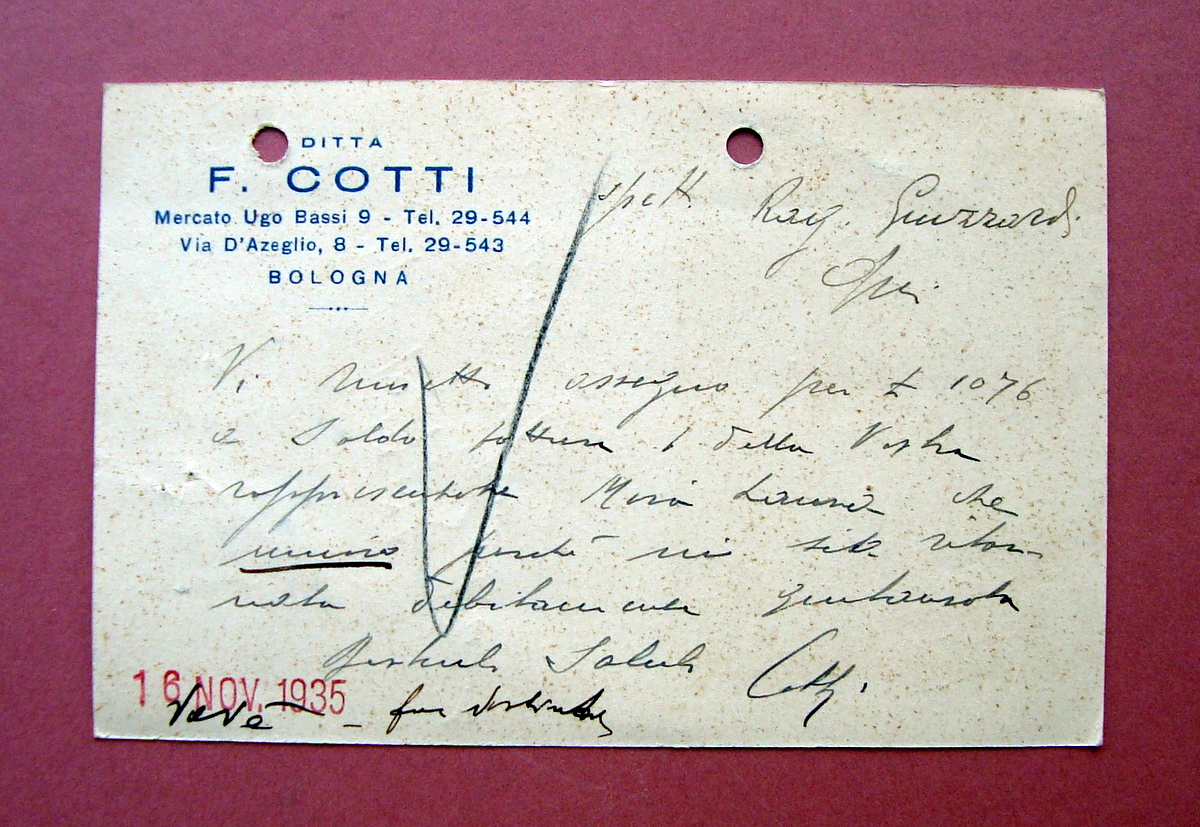 DITTA
F. COTTI
Mercato Ugo Bassi 9 - Tel. 29-544
Via D'Azeglio, 8 - Tel. 29-543
BOLOGNA
Spett Rag. Guizzardi
Vi rimetto assegno per £ 1076
a Saldo fattura della Vostra
rappresentante che
unisco perché mi sia ritor-
nata debitamente quietanzata
Distinti Saluti Cotti.
16 NOV. 1935